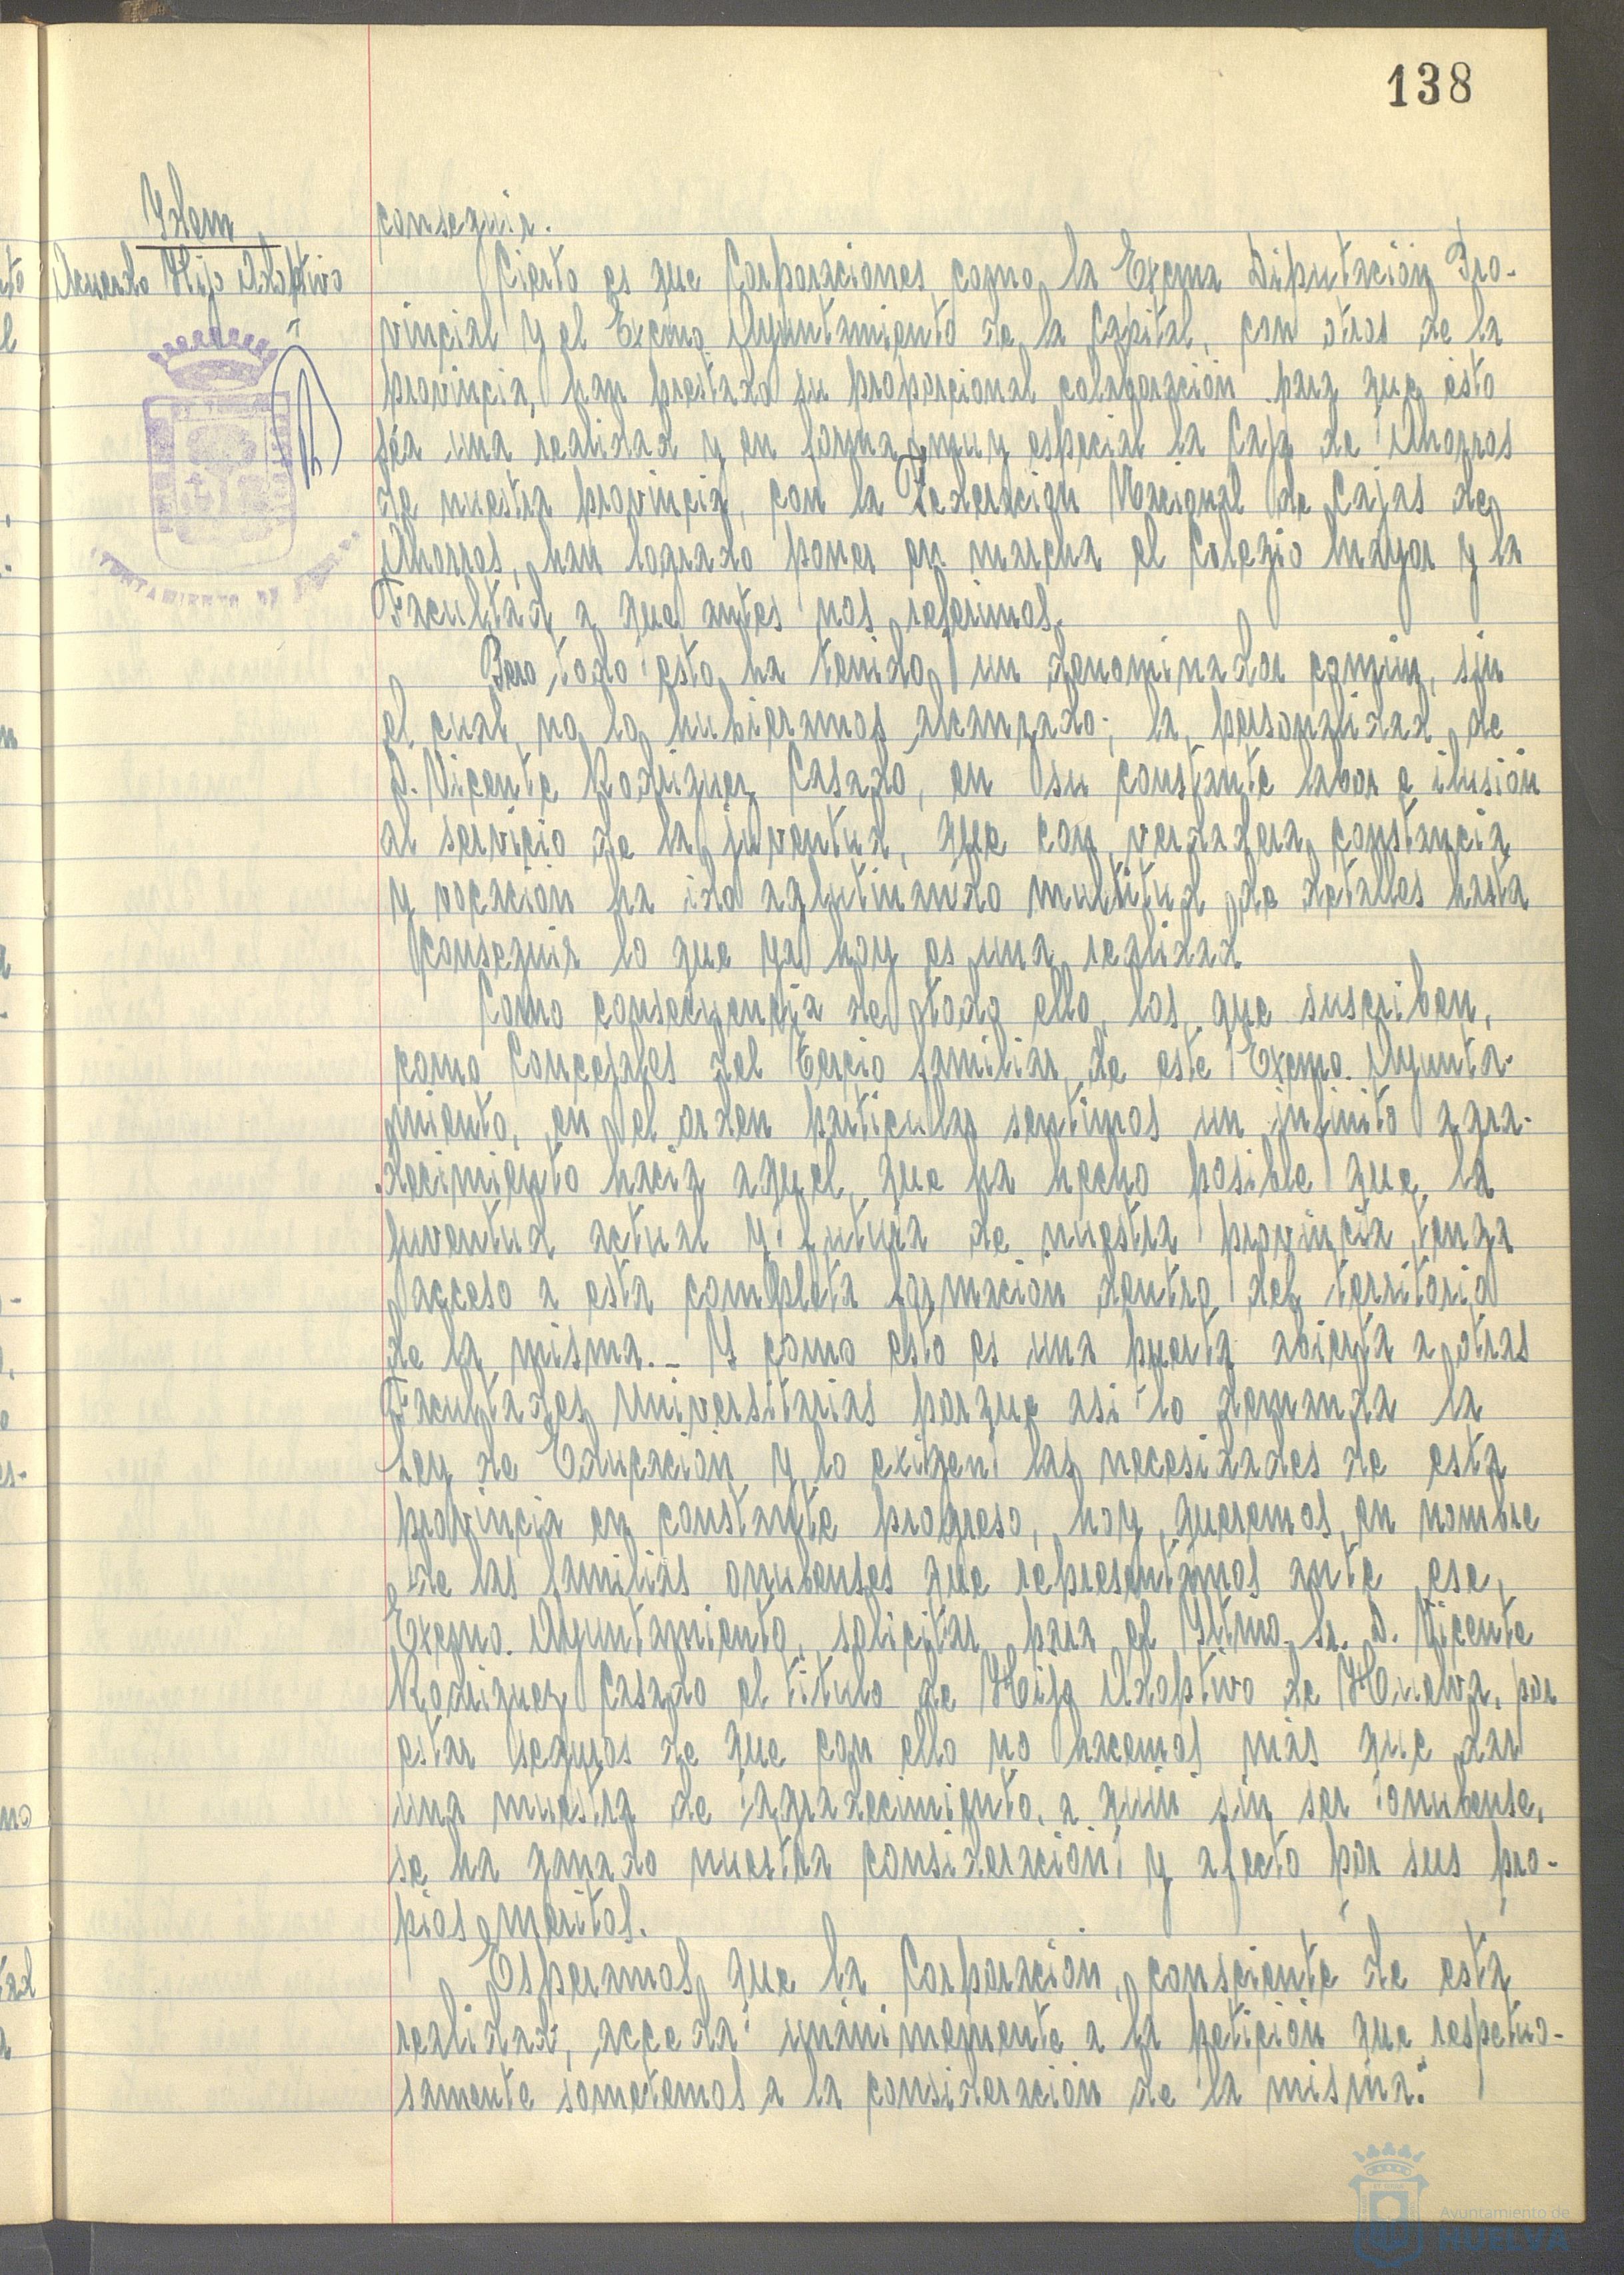 138
Idem
Acuerdo Hijo Adoptivo
conseguir.
Cierto es que Corporaciones como la Excma Diputación Pro-
vincial y el Excmo. Ayuntamiento de la Capital, con otros de la
provincia, han prestado su proporcional colaboración para que esto
séa una realidad y en forma muy especial la Caja de Ahorros
de nuestra provincia, con la Federación Nacional de Cajas de
Ahorros, han logrado poner en marcha el Colegio Mayor y la
Facultad a que antes nos referimos.
Pero todo esto ha tenido un denominador comun, sin
el cual no lo hubieramos alcanzado; la personalidad de
D. Vicente Rodriguez Casado, en su constante labor e ilusión
al servicio de la juventud, que con verdadera constancia
y vocación ha ido aglutinando multitud de detalles hasta
conseguir lo que ya hoy es una realidad
Como consecuencia de todo ello, los que suscriben,
como Concejales del Tercio familiar de este Excmo. Ayunta-
miento, en el orden particular sentimos un infinito agra-
decimiento hacia aquel que ha hecho posible que la
juventud actual y futura de nuestra provincia tenga
acceso a esta completa formación dentro del territorio
de la misma.- Y como esto es una puerta abierta a otras
Facultades Universitarias porque asi lo demanda la
Ley de Educación y lo exigen las necesidades de esta
provincia en constante progreso, hoy queremos en nombre
de las familias onubenses que representamos ante ese
Excmo. Ayuntamiento, solicitar para el Iltmo. Sr. D. Vicente
Rodriguez Casado el titulo de Hijo Adoptivo de Huelva, por
estar seguros de que con ello no hacemos más que dar
una muestra de agradecimiento, a quin sin ser onubense,
se ha ganado nuestra consideración y afecto por sus pro-
pios meritos.
Esperamos que la Corporación, consciente de esta
realidad, acceda unánimemente a la petición que respetuo-
samente sometemos a la consideración de la misma."
AYUNTAMIENTO DE HUELVA
Ayuntamiento de
HUELVA